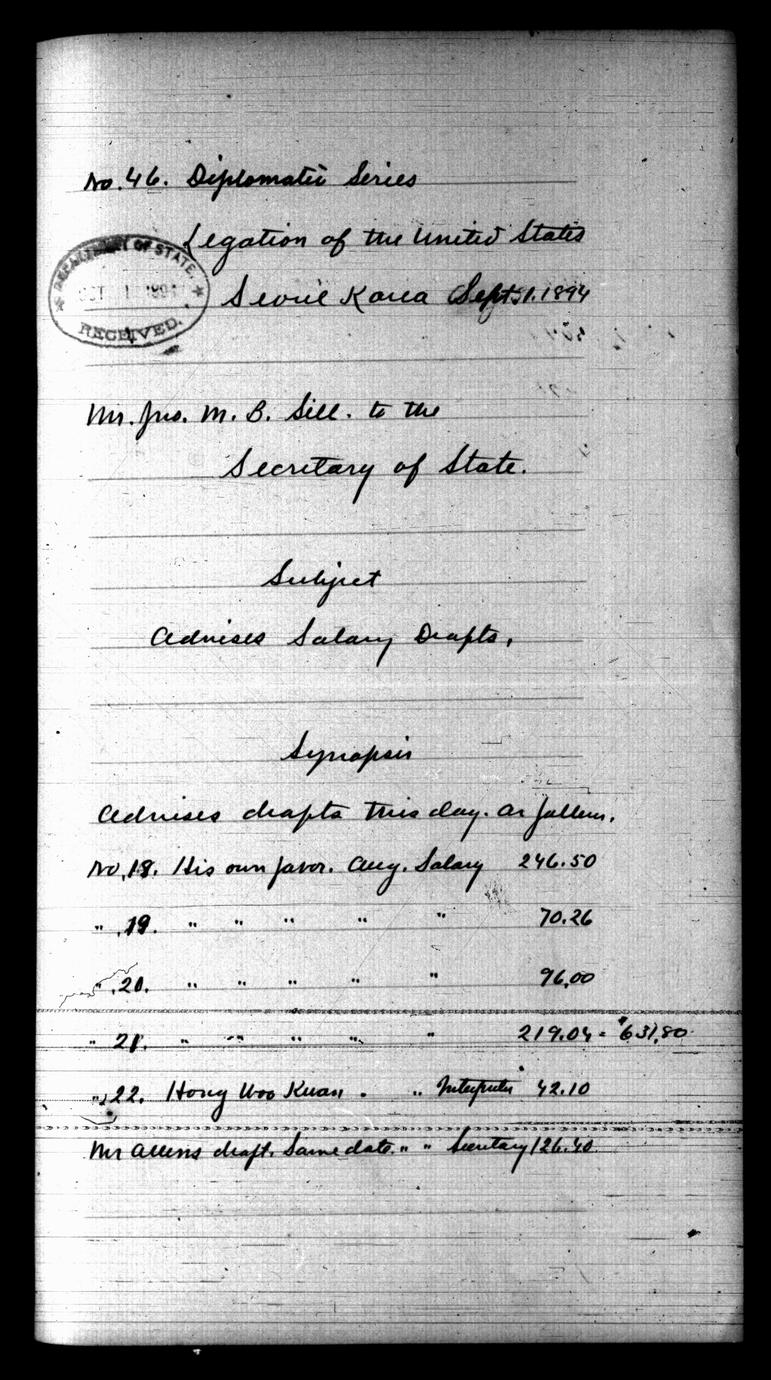 No. 46. Diplomatic Series
Legation of the United States
DEPARTMENT OF STATE,
OCT 1 1894
RECEIVED.
Seoul Korea Sept 1. 1894
Mr. Jno. M. B. Sill. to the
Secretary of State.
Subject
Advises Salary Drafts.
Synopsis
Advises drafts this day. as follows.
No. 18. His own favor. Aug. Salary 246.50
" . 19. " " " " " 70.26
" . 20. " " " " " 96.00
" 21. " " " " " 219.04 = $631.80
" 22. Hong Woo Kuan . " Interpreter 42.10
Mr Allens draft. Same date. " " Secretary 126.40